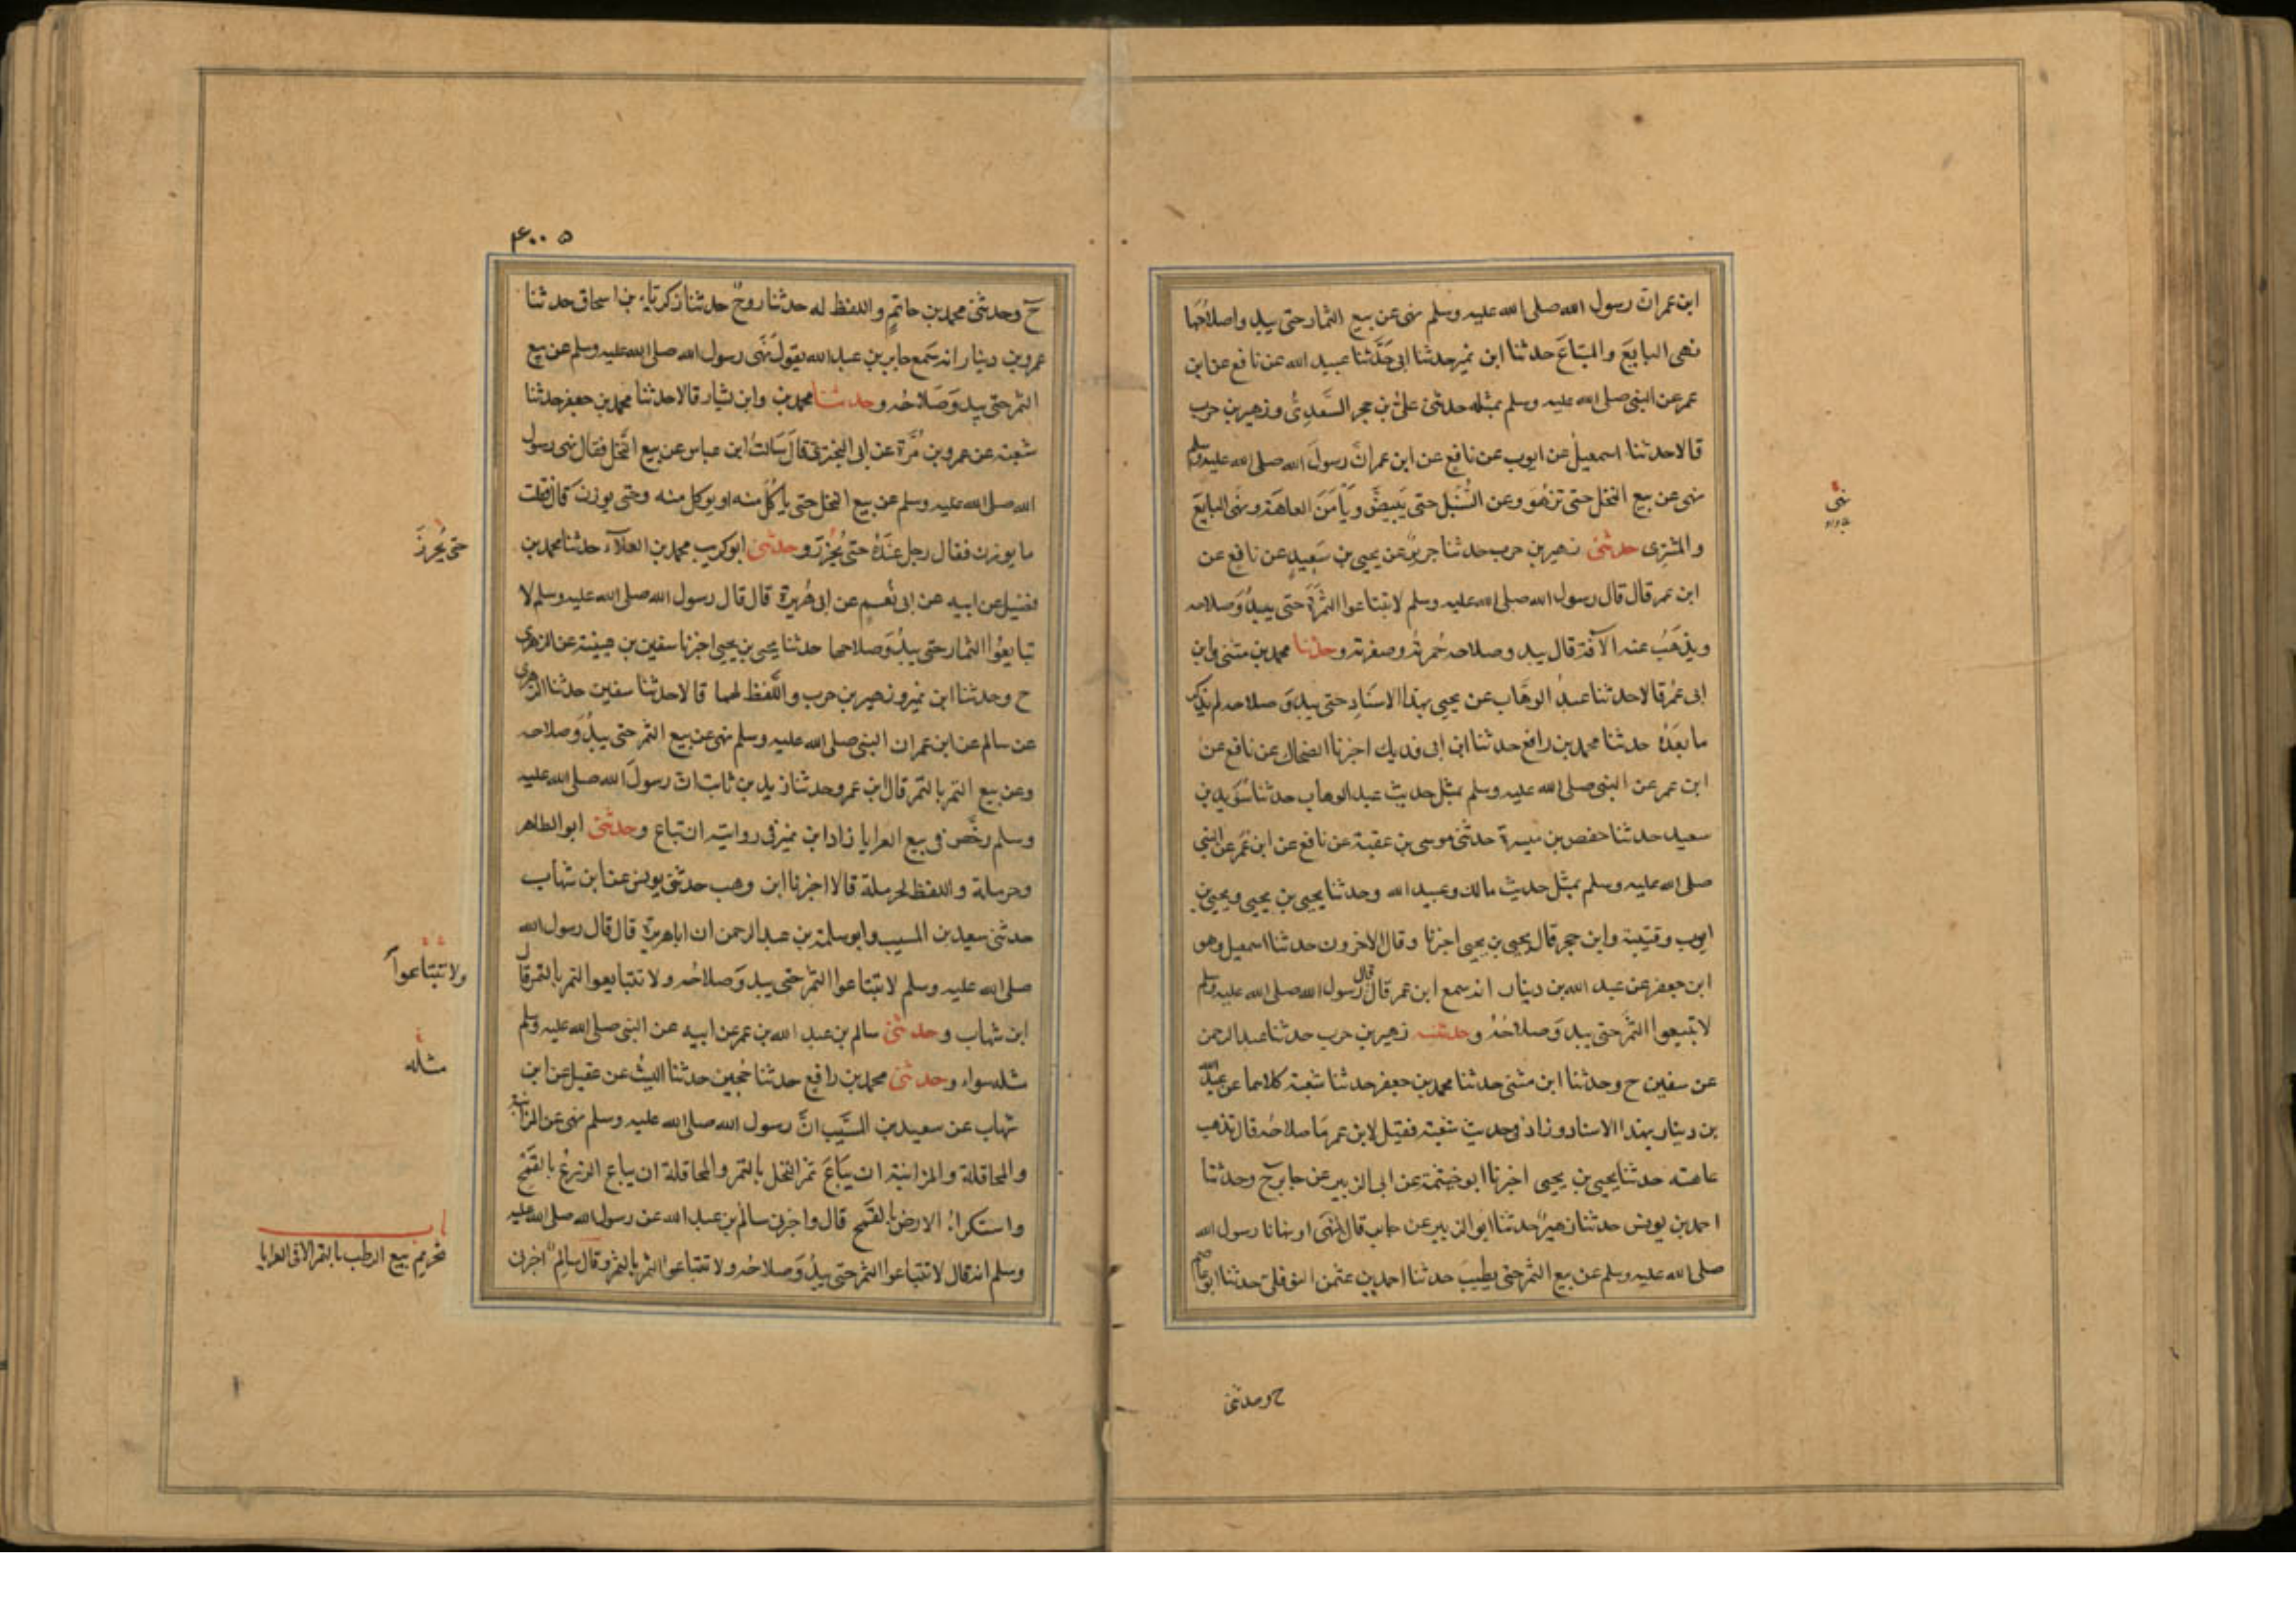 ابن عمر ان رسول الله صلى الله عليه وسلم نهى عن بيع الثمار حتى يبدوا صلاحُها
نهى البايعَ والمبتاعَ حدثنا ابن نمير حدثنا ابى حدَّثنا عبيد الله عن نافع عن ابن
عمر عن النبى صلى الله عليه وسلم بمثله حدثنى علىُّ بن حجر السَّعدِىُّ وزهير بن حرب
قالا حدثنا اسمعيلُ عن ايوب عن نافع عن ابن عمر انَّ رسولَ الله صلى الله عليه وسلم
نهى عن بيع النخل حتى تزهُوَ وعن السُّنْبُلِ حتى يَبْيَضَّ ويَأمَنَ العاهَةَ ونهَى البايعَ
نهى
والمشترِى حدثنى زهير بن حرب حدثنا جريرٌ عن يحيى بن سَعِيدٍ عن نافع عن
ابن عمر قال قال رسول الله صلى الله عليه وسلم لا تبتاعوا الثَّمَرَةَ حتى يبدُوَ صلاحه
ويَذهَبُ عنه الآفة قال يبدو صلاحه حُمرتُه وصفرته وحدثنا محمد بن مثنى وابن
ابى عُمر قالا حدثنا عبدُ الوهَّاب عن يحيى بهذا الاسنَادِ حتى يبدوَ صلاحه لم يذكر
ما بعَدَهُ حدثنا محمد بن رافع حدثنا ابن ابى فديك اخبرنا الضحاك عن نافع عن
ابن عمر عن النبى صلى الله عليه وسلم بمثل حديث عبد الوهاب حدثنا سُوَيد بن
سعيد حدثنا حفص بن ميسرة حدثنى موسى بن عقبة عن نافع عن ابن عُمر عن النبى
صلى الله عليه وسلم بمثل حديث مالك وعبيد الله وحدثنا يحيى بن يحيى ويحيى بن
ايوب وقتيبة وابن حجر قال يحيى بن يحيى اخبرنا وقال الاخرون حدثنا اسمعيل وهو
ابن جعفر عن عبد الله بن دينار انه سمع ابن عمر قال قال رسول الله صلى الله عليه وسلم
لا تبيعوا الثَّمَرَ حتى يبدوَ صلاحُهُ وحدثنيه زهير بن حرب حدثنا عبد الرحمن
عن سفين ح وحدثنا ابن مثنى حدثنا محمد بن جعفر حدثنا شعبة كلاهما عن عبد الله
بن دينار بهذا الاسناد وزاد فى حديث شعبة فقيل لابن عمر مَا صلاحُه قال تذهب
عاهته حدثنا يحيى بن يحيى اخبرنا ابو خيثمة عن ابى الزبير عن جابر ح وحدثنا
احمد بن يونس حدثنا زهيرٌ حدثنا ابو الزبير عن جابر قال نَهَى او نهانا رسول الله
صلى الله عليه وسلم عن بيع الثمر حتى يطيبَ حدثنا احمد بن عثمن النوفلى حدثنا ابو عاصم
ح وحدثنى
٤٠٠٥
ح وحدثنى محمد بن حاتمٍ واللفظ له حدثنا روحٌ حدثنا زكرياء بن اسحاق حدثنا
عمرو بن دينار انه سَمع جابر بن عبد الله يقول نَهَى رسول الله صلى الله عليه وسلم عن بيع
الثمر حتى يبدوَ صَلاحُه وحدثنا محمد بن وابن بشار قالا حدثنا محمد بن جعفر حدثنا
شعبة عن عمرو بن مُرَّة عن ابى البخترى قالَ سَالتُ ابن عباس عن بيع النَّخل فقال نهى رسول
الله صلى الله عليه وسلم عن بيع النخل حتى ياكُلَ منه او يوكل منه وحتى يوزن قال فقلت
ما يوزن فقال رجل عِندَهُ حتى يُحْزَرَ وحدثنى ابو كريب محمد بن العلآء حدثنا محمد بن
حتى يُحْرَزَ
فضيل عن ابيه عن ابى نُعم عن ابى هُريرة قال قال رسول الله صلى الله عليه وسلم لا
تبايعُوا الثمار حتى يبدُوَ صلاحها حدثنا يحيى بن يحيى اخبرنا سفين بن عيينة عن الزهرى
ح وحدثنا ابن نمير وزهير بن حرب واللَّفظ لهما قالا حدثنا سفين حدثنا الزهرى
عن سالم عن ابن عمر ان النبى صلى الله عليه وسلم نهى عن بيع الثمر حتى يبدُوَ صلاحه
وعن بيع الثمر بالتمر قال ابن عمر وحدثنا زيد بن ثابت ان رسولَ الله صلى الله عليه
وسلم رخَّص فى بيع العرايا زاد ابن نمير فى روايته ان تباع وحدثنى ابو الطاهر
وحرملة واللفظ لحرملة قالا اخبرنا ابن وهب حدثنى يونس عن ابن شهاب
حدثنى سعيد بن المسيب وابو سلمة بن عبد الرحمن ان اباهريرة قال قال رسول الله
صلى الله عليه وسلم لا تبتاعوا الثمر حتى يبدوَ صلاحُه ولا تتبايعوا الثمر بالتمر قال
ولا تبتاعوا
ابن شهاب وحدثنى سالم بن عبد الله بن عمر عن ابيه عن النبى صلى الله عليه وسلم
مثله سواء وحدثنى محمد بن رافع حدثنا حُجين حدثنا الليثُ عن عقيل عن ابن
مثله
شهاب عن سعيد بن المسَيَّب انَّ رسول الله صلى الله عليه وسلم نهى عن المزابنة
والمحاقلة والمزابنة ان يبَاعَ ثمر النخل بالتمر والمحاقلة ان يباع الزرعُ بالقَمْحِ
واستكراءُ الارض بالقمح قال واخبرنى سالمُ بن عبد الله عن رسول الله صلى الله عليه
وسلم انه قال لا تبتاعوا الثمر حتى يبدُوَ صلاحُه ولا تبتاعوا الثمر بالتمر وقال سالمٌ اخبرنى
باب
تحريم بيع الرطب بالتمر الا فى العرايا